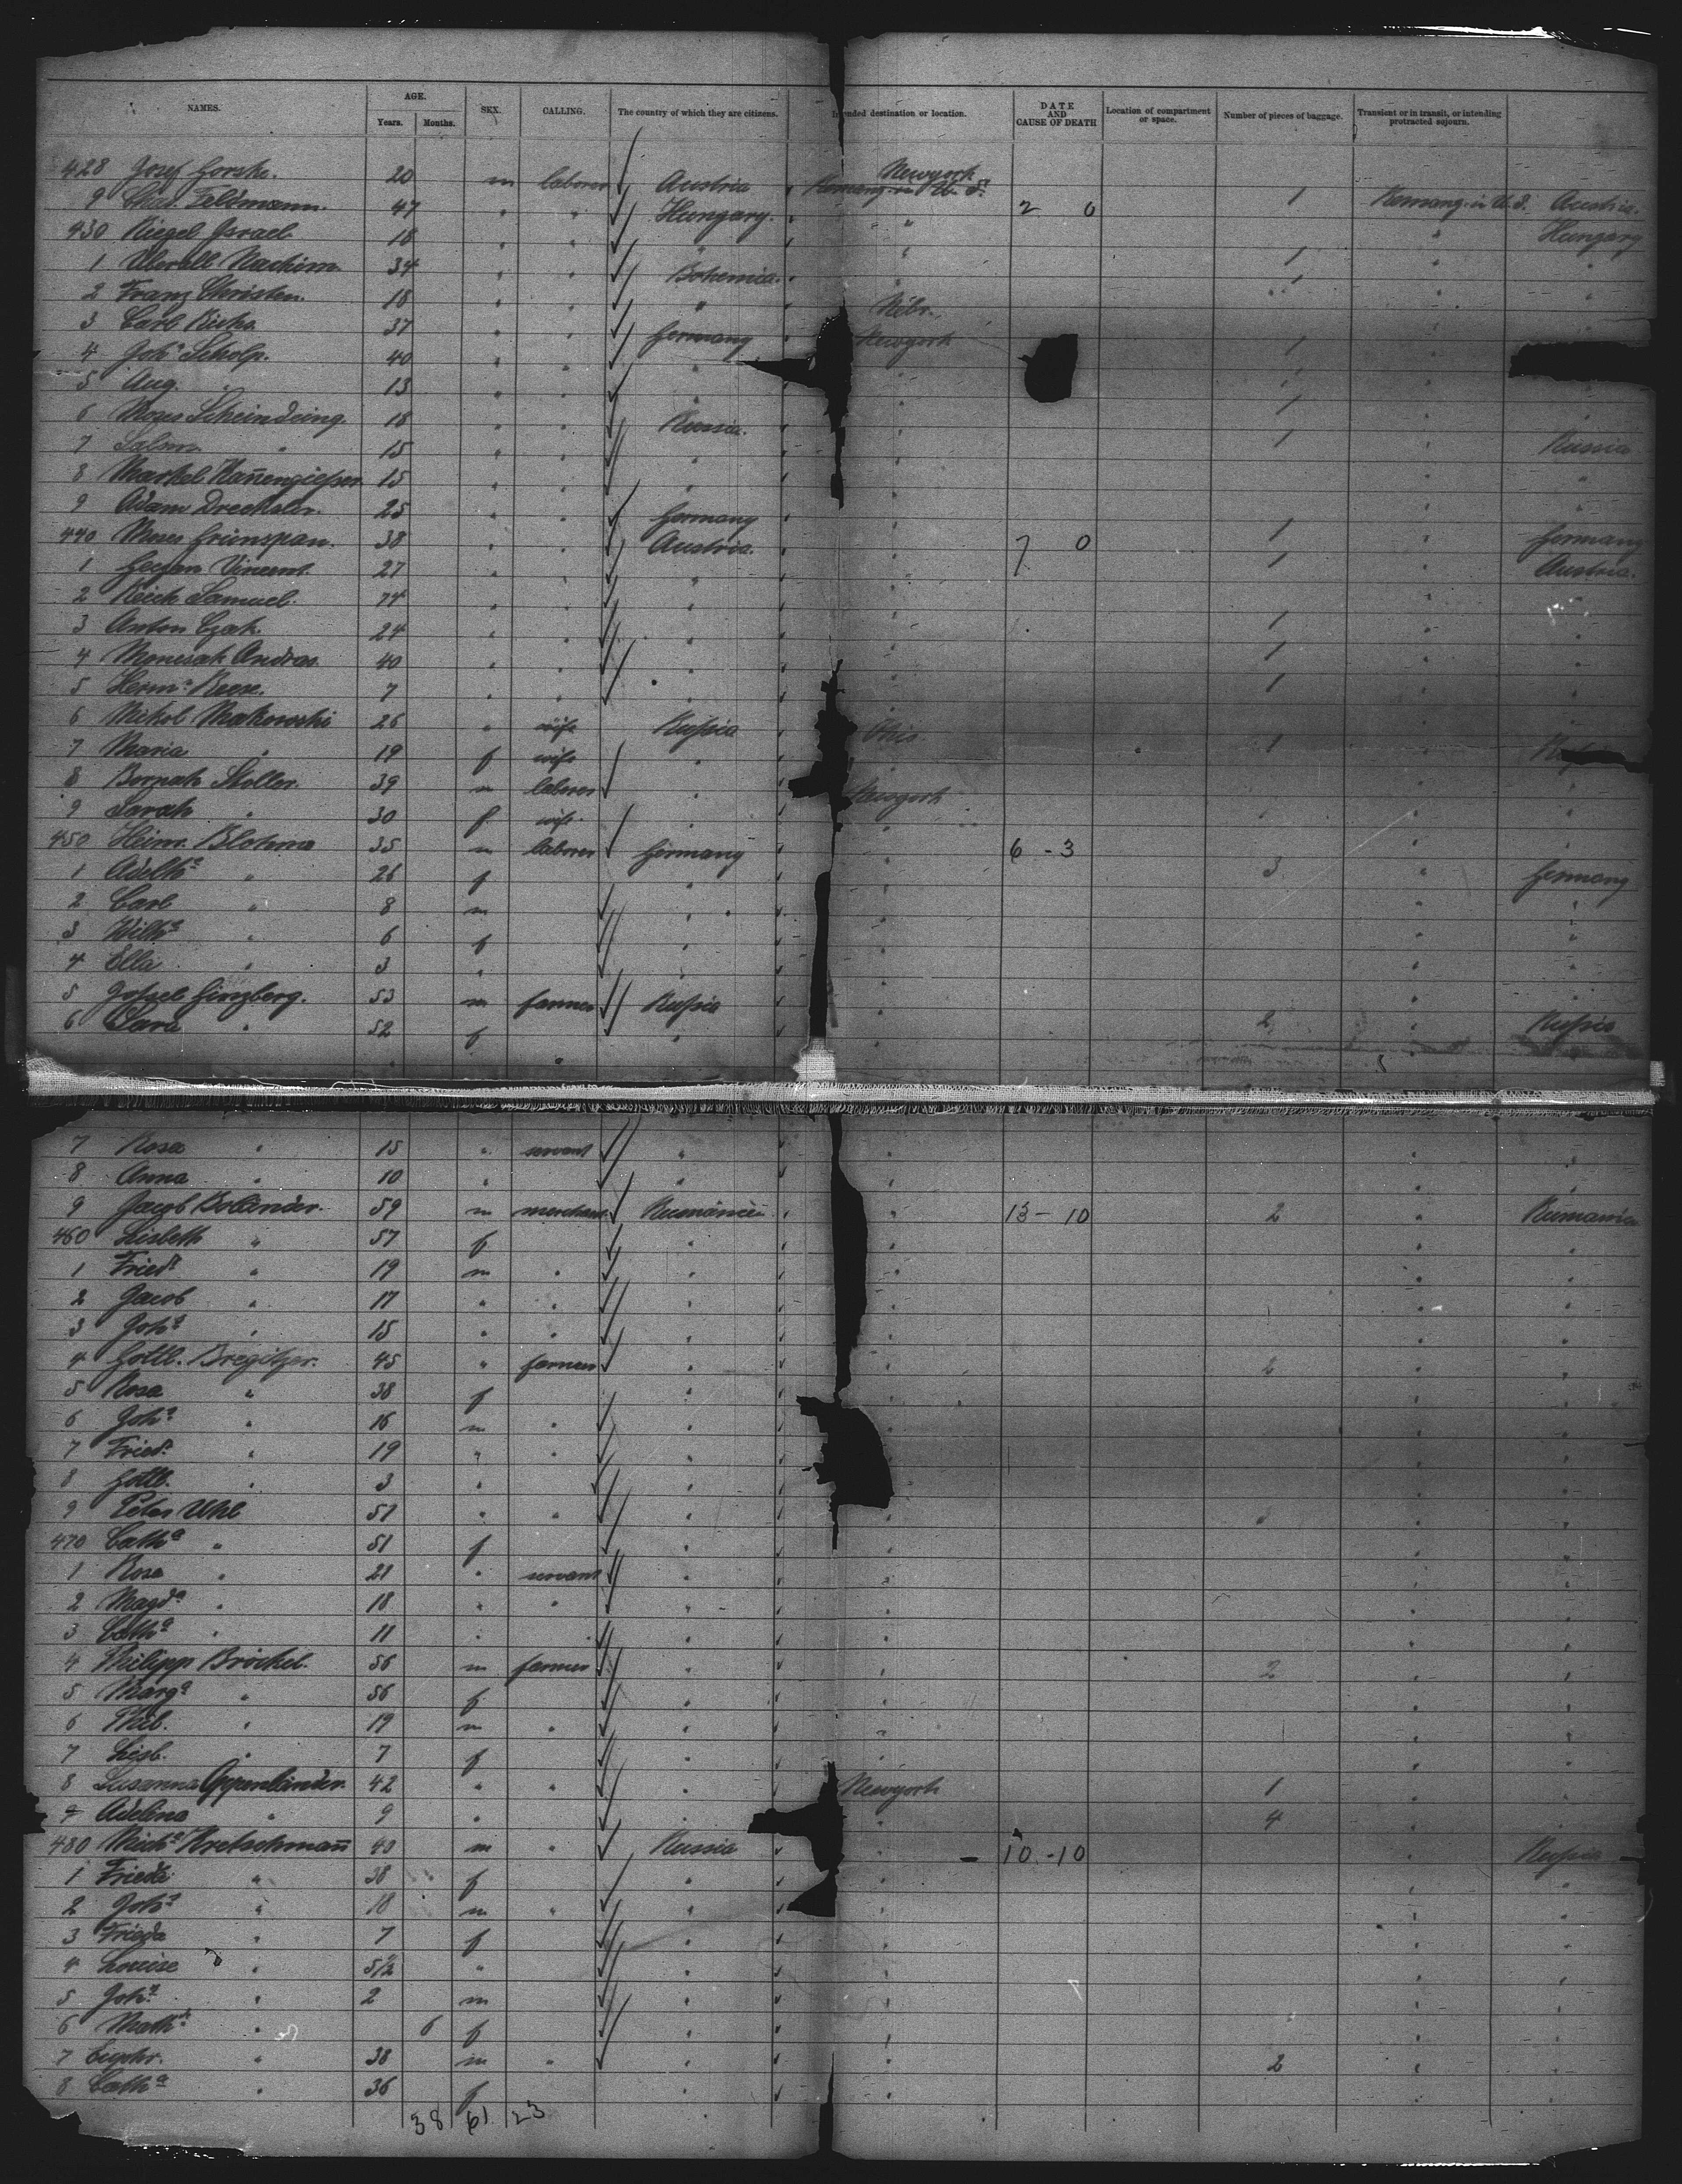 NAMES. AGE. Years. Months. SEX. CALLING. The country of which they are citizens. Intended destination or location. DATE AND CAUSE OF DEATH Location of compartment or space. Number of pieces of baggage. Transient or in transit, or intending protracted sojourn.
428 Josef 20 m laborer Austria Newyork
9 Feldmann. 47 " " Hungary. " 2 0 1 Remang. in U. S. Austria.
430 Riegel Israel 18 " " " " " Hungary
1 Nachim 34 " " Bohemia. " 1 " "
2 Franz Christen. 18 " " " Nebr. 1 " "
3 Carl 37 " " Germany Newyork "
4 Joh. Scholp. 40 " " " " 1 "
5 Aug. " 13 " " " " " "
6 Moses Scheindeing. 18 " " Russia. " 1 "
7 " 15 " " " " 1 " Russia
8 Markel Kan̄engiesser 15 " " " " " "
9 Adam Drechsler. 25 " " Germany " "
440 Moses Grünspan. 38 " " Austria. " 7 0 1 " Germany
1 Vincent. 27 " " " " 1 " Austria.
2 Reich Samuel. 74 " " " " " "
3 Anton Czak. 24 " " " " 1 " "
4 Andras. 40 " " " " 1 " "
5 Herm. Reese. 7 " " " " 1 " "
6 Makowski 26 " wife Russia "
7 Maria " 19 f wife " " 1 "
8 Stoller. 39 m laborer " Newyork " "
9 Sarah " 30 f wife " " " "
450 Heinr. Blohme 35 m laborer Germany " 6 - 3 "
1 Adelh. " 26 f " " 3 " Germany
2 Carl " 8 m " " " "
3 Wilh. " 6 f " " " "
4 Ella " 3 " " " " "
5 Ginzberg. 53 m farmer Russia " "
6 Sara " 52 f " " 2 " Russia
7 Rosa " 15 " servant " " " "
8 Anna " 10 " " " " "
9 Jacob Boländer. 59 m merchant Rumänien " 13 - 10 2 " Rumania
460 Lisbeth " 57 f " " " "
1 Fried. " 19 m " " " " "
2 Jacob " 17 " " " " " "
3 Joh. " 15 " " " " " "
4 Gottl. Bregitzer. 45 " farmer " " 2 " "
5 Rosa " 38 f " " " "
6 Joh. " 16 m " " " "
7 Fried. " 19 " " " " "
8 Gottl. " 3 " " " "
9 Peter Uhl 51 " " " " "
470 Cath.a " 51 f " " " "
1 Rosa " 21 " servant " " " "
2 Magd.a " 18 " " " " " "
3 Cath.a " 11 " " " " "
4 Philipp Bröckel. 56 m farmer " " 2 " "
5 Marg.a " 56 f " " " "
6 Phil. " 19 m " " " " "
7 Lisb. " 7 f " " " "
8 Susanna Oppenländer. 42 " " " Newyork 1 " "
9 Adelina " 9 " " " 4 " "
480 Mich. Kretschman̄ 40 m " Russia " 10 - 10 Russia
1 Frieda " 38 f " " " "
2 Joh. " 18 m " " " " "
3 Frieda " 7 f " " " "
4 Louise " 5½ " " " " "
5 Joh. " 2 m " " " "
6 Math. " 6 f " " " "
7 " 38 m " " " 2 " "
8 Cath.a " 36 f " " " "
38 61 23